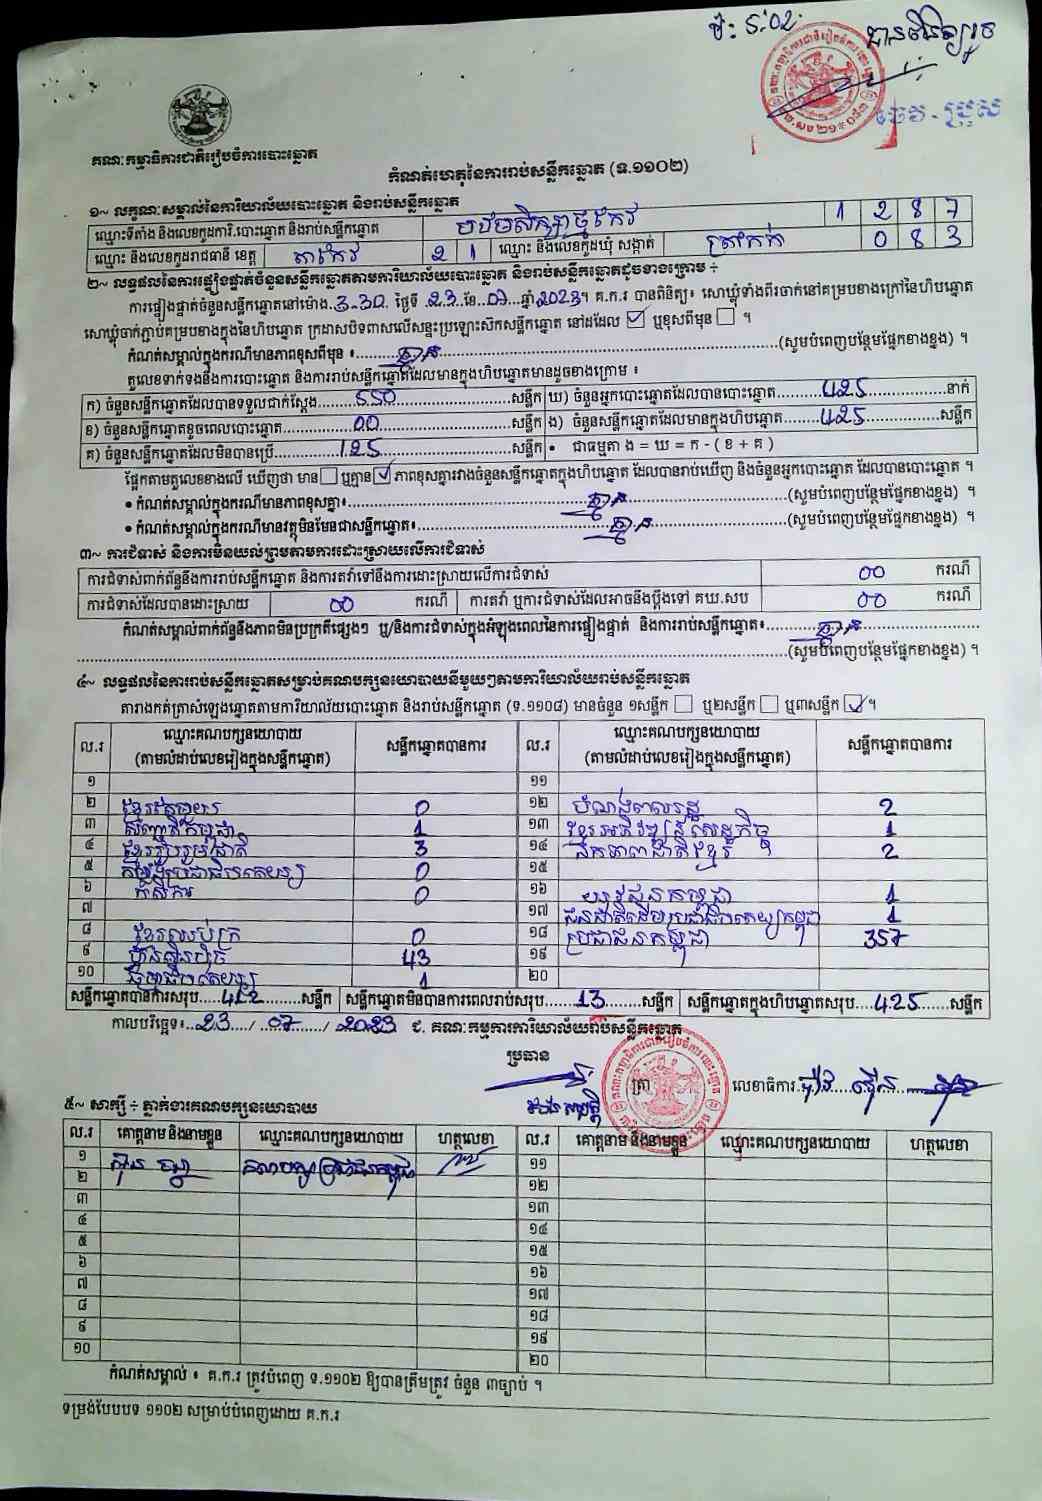 ម៉ : 5.02.
គណៈកម្មាធិការជាតិរៀបចំការបោះឆ្នោត
កំណត់ហេតុនៃការរាប់សន្លឹកឆ្នោត (ទ.១១០២)
១~ លក្ខណៈសម្គាល់នៃការិយាល័យបោះឆ្នោត និងរាប់សន្លឹកឆ្នោត
ឈ្មោះទីតាំង និងលេខកូដការិ.បោះឆ្នោត និងរាប់សន្លឹកឆ្នោត 1 2 8 7
ឈ្មោះ និងលេខកូដរាជធានី ខេត្ត តាកែវ 2 1 ឈ្មោះ និងលេខកូដឃុំ សង្កាត់ 0 8 3
២~ លទ្ធផលនៃការផ្ទៀងផ្ទាត់ចំនួនសន្លឹកឆ្នោតតាមការិយាល័យបោះឆ្នោត និងរាប់សន្លឹកឆ្នោតដូចខាងក្រោម ÷
ការផ្ទៀងផ្ទាត់ចំនួនសន្លឹកឆ្នោតនៅម៉ោង 3.30 ថ្ងៃទី 23 ខែ 07 ឆ្នាំ 2023។ គ.ក.រ បានពិនិត្យ៖ សោឃ្លុំទាំងពីរចាក់នៅគម្របខាងក្រៅនៃហិបឆ្នោត
សោឃ្លុំចាក់ភ្ជាប់គម្របខាងក្នុងនៃហិបឆ្នោត ក្រដាសបិទពាសលើសន្ទះប្រឡោះស៊កសន្លឹកឆ្នោត នៅដដែល ☑ ឬខុសពីមុន ☐ ។
កំណត់សម្គាល់ក្នុងករណីមានភាពខុសពីមុន ៖ គ្មាន (សូមបំពេញបន្ថែមផ្នែកខាងខ្នង) ។
តួលេខទាក់ទងនឹងការបោះឆ្នោត និងការរាប់សន្លឹកឆ្នោតដែលមានក្នុងហិបឆ្នោតមានដូចខាងក្រោម ៖
ក) ចំនួនសន្លឹកឆ្នោតដែលបានទទួលជាក់ស្តែង 550 សន្លឹក ឃ) ចំនួនអ្នកបោះឆ្នោតដែលបានបោះឆ្នោត 425 នាក់
ខ) ចំនួនសន្លឹកឆ្នោតខូចពេលបោះឆ្នោត 00 សន្លឹក ង) ចំនួនសន្លឹកឆ្នោតដែលមានក្នុងហិបឆ្នោត 425 សន្លឹក
គ) ចំនួនសន្លឹកឆ្នោតដែលមិនបានប្រើ 125 សន្លឹក • ជាធម្មតា ង = ឃ = ក - ( ខ + គ )
ផ្អែកតាមតួលេខខាងលើ ឃើញថា មាន ☐ ឬគ្មាន ☑ ភាពខុសគ្នារវាងចំនួនសន្លឹកឆ្នោតក្នុងហិបឆ្នោត ដែលបានរាប់ឃើញ និងចំនួនអ្នកបោះឆ្នោត ដែលបានបោះឆ្នោត ។
• កំណត់សម្គាល់ក្នុងករណីមានភាពខុសគ្នា៖ គ្មាន (សូមបំពេញបន្ថែមផ្នែកខាងខ្នង) ។
• កំណត់សម្គាល់ក្នុងករណីមានវត្ថុមិនមែនជាសន្លឹកឆ្នោត៖ គ្មាន (សូមបំពេញបន្ថែមផ្នែកខាងខ្នង) ។
៣~ ការជំទាស់ និងការមិនយល់ព្រមតាមការដោះស្រាយលើការជំទាស់
ការជំទាស់ពាក់ព័ន្ធនឹងការរាប់សន្លឹកឆ្នោត និងការតវ៉ាទៅនឹងការដោះស្រាយលើការជំទាស់ 00 ករណី
ការជំទាស់ដែលបានដោះស្រាយ 00 ករណី ការតវ៉ា ឬការជំទាស់ដែលអាចនឹងប្តឹងទៅ គឃ.សប 00 ករណី
កំណត់សម្គាល់ពាក់ព័ន្ធនឹងភាពមិនប្រក្រតីផ្សេងៗ ឬ/និងការជំទាស់ក្នុងអំឡុងពេលនៃការផ្ទៀងផ្ទាត់ និងការរាប់សន្លឹកឆ្នោត៖ គ្មាន
(សូមបំពេញបន្ថែមផ្នែកខាងខ្នង) ។
៤~ លទ្ធផលនៃការរាប់សន្លឹកឆ្នោតសម្រាប់គណបក្សនយោបាយនីមួយៗតាមការិយាល័យរាប់សន្លឹកឆ្នោត
តារាងកត់ត្រាសំឡេងឆ្នោតតាមការិយាល័យបោះឆ្នោត និងរាប់សន្លឹកឆ្នោត (ទ.១១០៨) មានចំនួន ១សន្លឹក ☐ ឬ២សន្លឹក ☐ ឬ៣សន្លឹក ☑ ។
ល.រ ឈ្មោះគណបក្សនយោបាយ (តាមលំដាប់លេខរៀងក្នុងសន្លឹកឆ្នោត) សន្លឹកឆ្នោតបានការ ល.រ ឈ្មោះគណបក្សនយោបាយ (តាមលំដាប់លេខរៀងក្នុងសន្លឹកឆ្នោត) សន្លឹកឆ្នោតបានការ
១ ១១
២ 0 ១២ 2
៣ 1 ១៣ ខ្មែរអភិវឌ្ឍន៍សេដ្ឋកិច្ច 1
៤ ខ្មែររួបរួមជាតិ 3 ១៤ ឯកភាពជាតិខ្មែរ 2
៥ 0 ១៥
៦ កសិករ 0 ១៦ យុវជនកម្ពុជា 1
៧ ១៧ ជនជាតិដើមប្រជាធិបតេយ្យកម្ពុជា 1
៨ 0 ១៨ ប្រជាជនកម្ពុជា 357
៩ ហ៊្វុនស៊ិនប៉ិច 43 ១៩
១០ 1 ២០
សន្លឹកឆ្នោតបានការសរុប 412 សន្លឹក សន្លឹកឆ្នោតមិនបានការពេលរាប់សរុប 13 សន្លឹក សន្លឹកឆ្នោតក្នុងហិបឆ្នោតសរុប 425 សន្លឹក
កាលបរិច្ឆេទ៖ 23 / 07 / 2023 ជ. គណៈកម្មការការិយាល័យរាប់សន្លឹកឆ្នោត
ប្រធាន
ត្រា លេខាធិការ
៥~ សាក្សី ÷ ភ្នាក់ងារគណបក្សនយោបាយ
ល.រ គោត្តនាម និងនាមខ្លួន ឈ្មោះគណបក្សនយោបាយ ហត្ថលេខា ល.រ គោត្តនាម និងនាមខ្លួន ឈ្មោះគណបក្សនយោបាយ ហត្ថលេខា
១ គណបក្សប្រជាជនកម្ពុជា ១១
២ ១២
៣ ១៣
៤ ១៤
៥ ១៥
៦ ១៦
៧ ១៧
៨ ១៨
៩ ១៩
១០ ២០
កំណត់សម្គាល់ ៖ គ.ក.រ ត្រូវបំពេញ ទ.១១០២ ឱ្យបានត្រឹមត្រូវ ចំនួន ៣ច្បាប់ ។
ទម្រង់បែបបទ ១១០២ សម្រាប់បំពេញដោយ គ.ក.រ